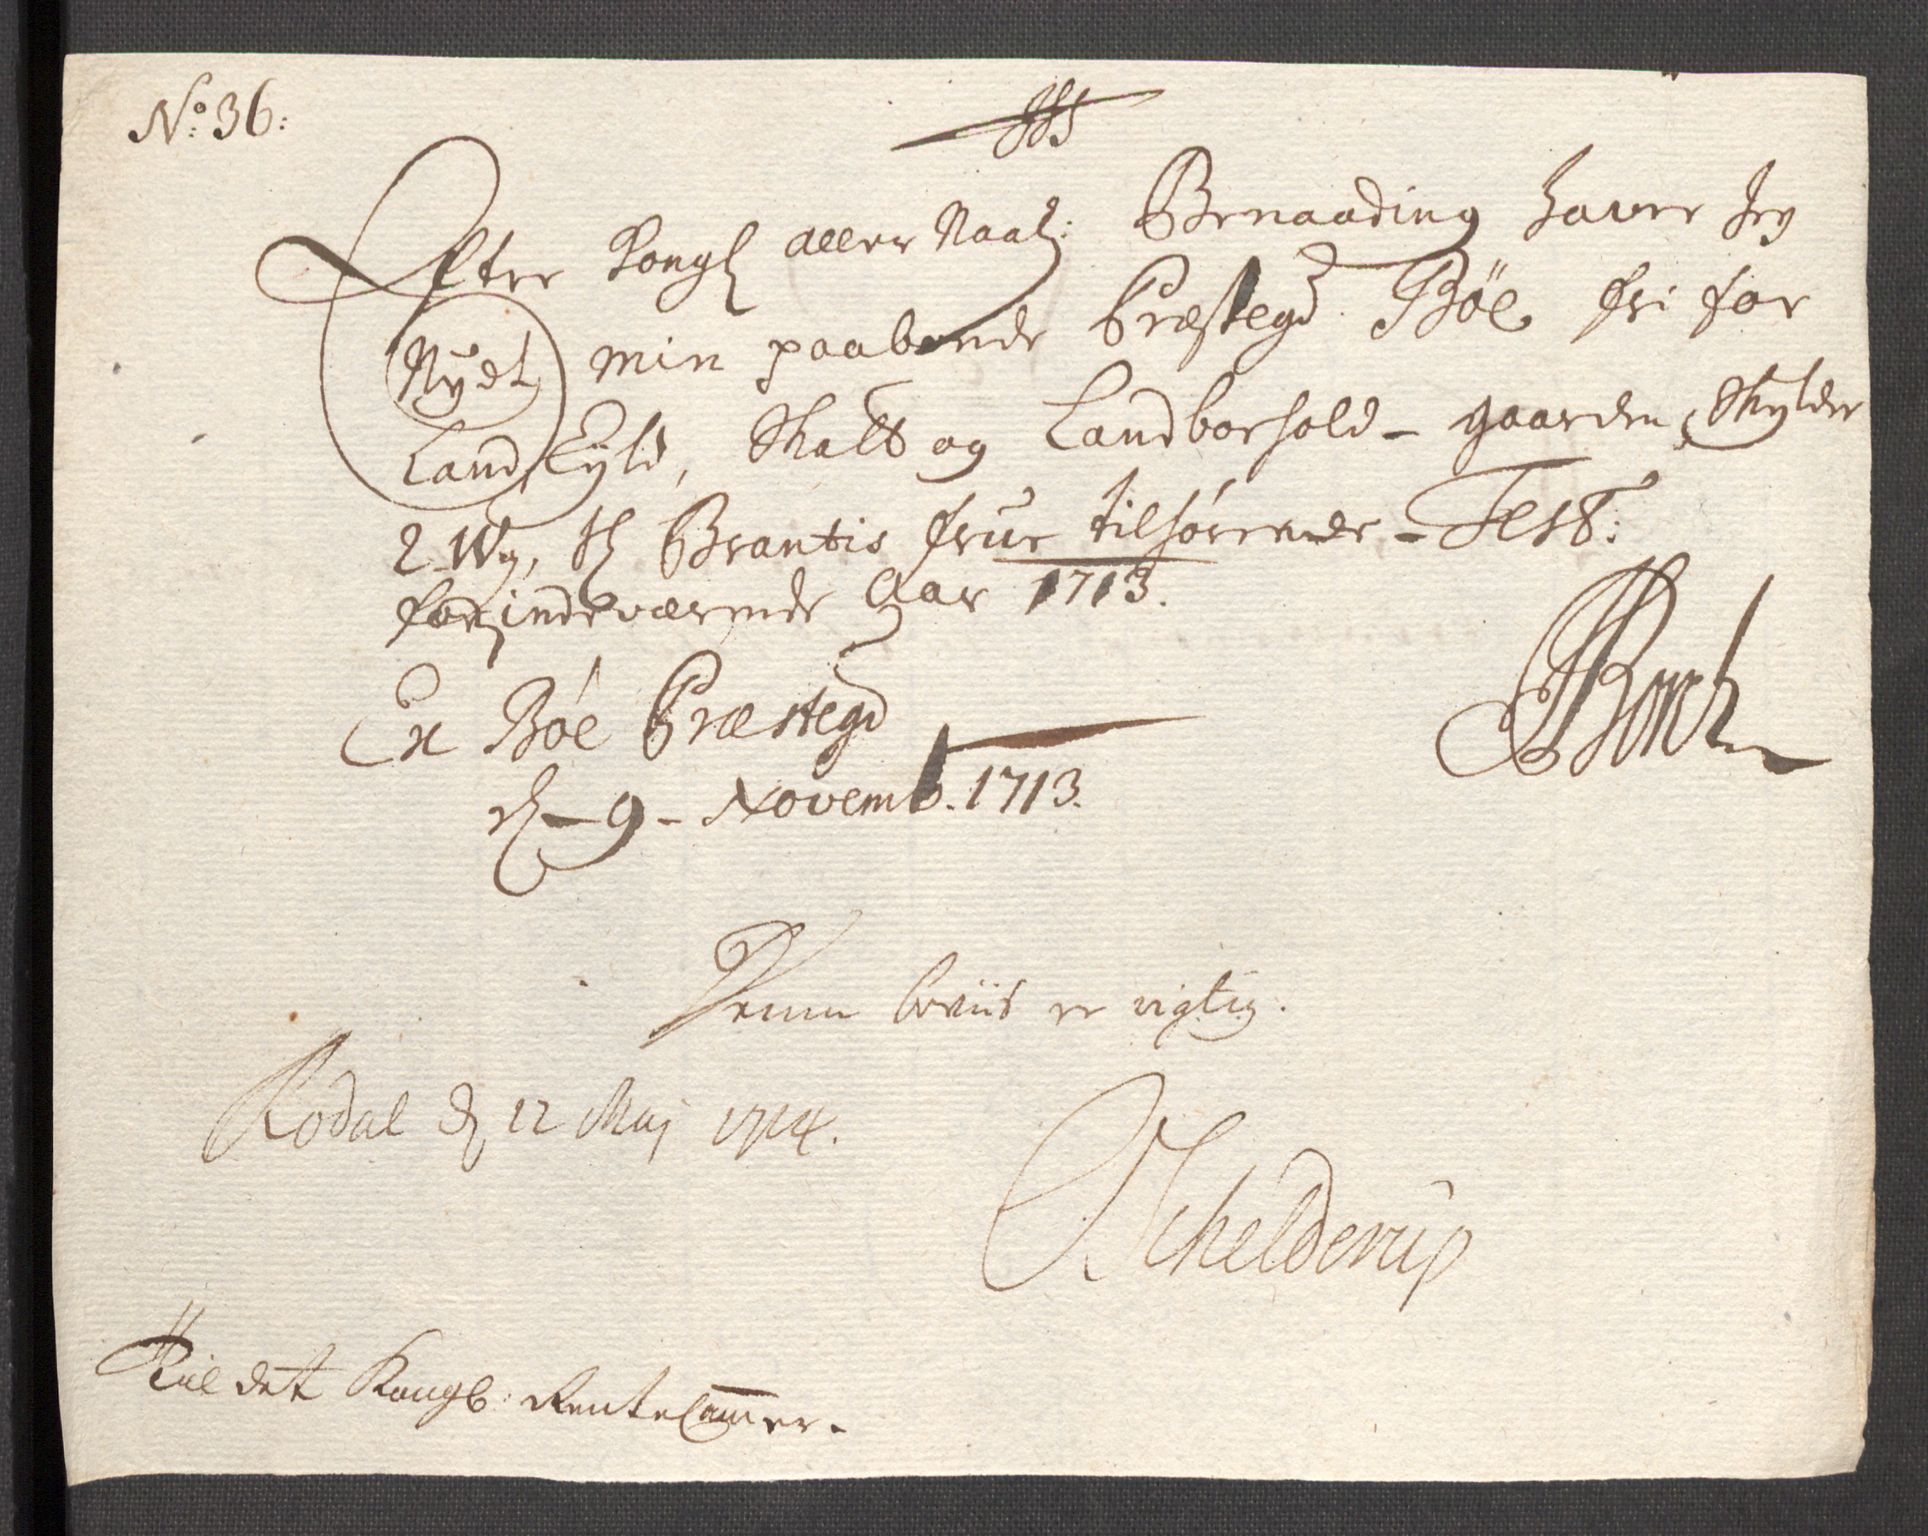 No: 36:
JHS
Efter Kongl aller Naad: Benaading haver Jeg
Nydt min paaboende Præstegd Böe fri for
Land Eyld, Skatt og Landborhold - gaarden Skylder
2 Wg, Hr Brantis frue tilhörende - Test:
for indeværende Aar 1713.
Ex Böe Præstegd
d - 9 - Novemb. 1713.
Denne beviis er rigtig.
Rodal d 12 Maj 1714.
Schelderup
Til det Kongl: Rente Camer.